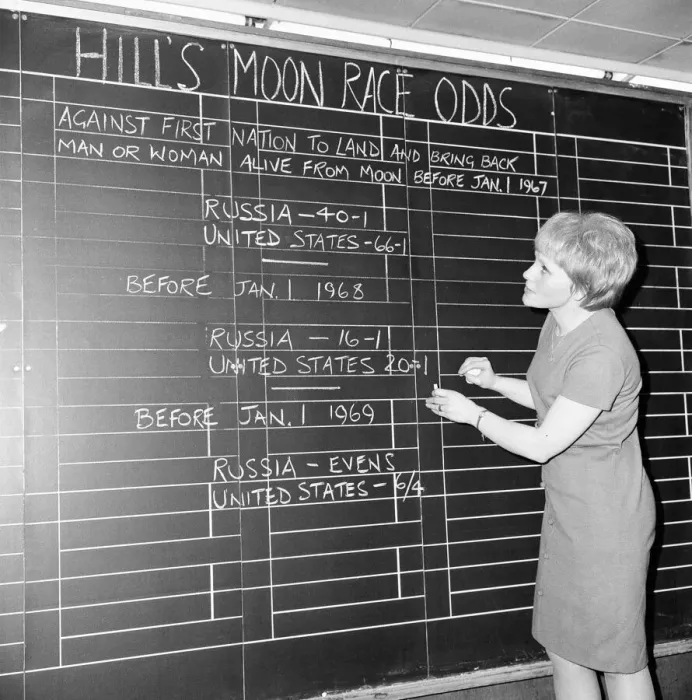 HILL'S MOON RACE ODDS
AGAINST FIRST NATION TO LAND AND BRING BACK
MAN OR WOMAN ALIVE FROM MOON BEFORE JAN. 1 1967
RUSSIA - 40-1
UNITED STATES - 66-1
BEFORE JAN. 1 1968
RUSSIA - 16-1
UNITED STATES 20-1
BEFORE JAN. 1 1969
RUSSIA - EVENS
UNITED STATES - 6/4